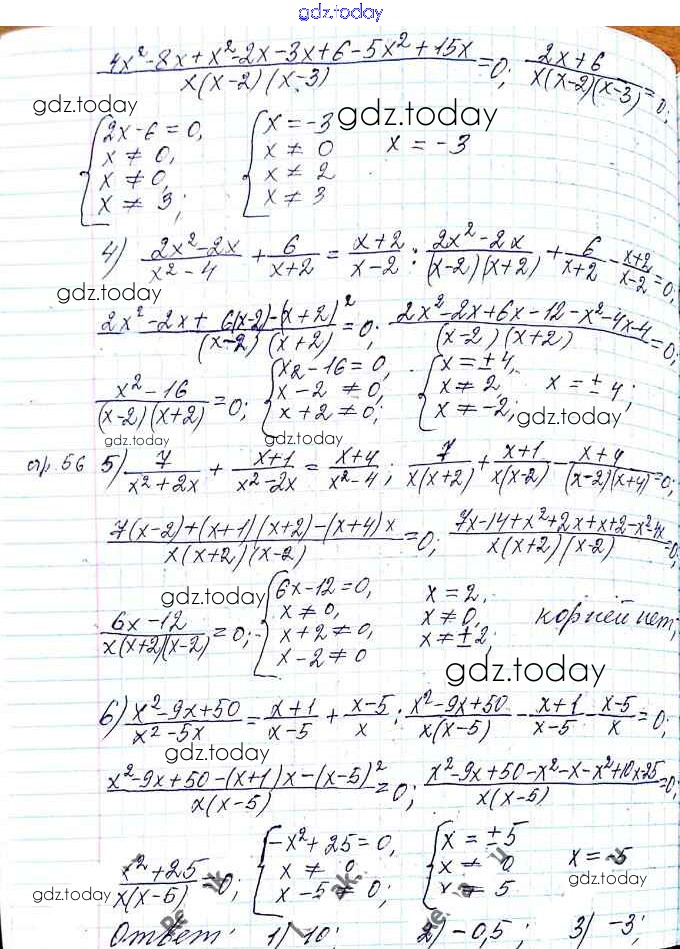 gdz.today
4x²-8x+x²-2x-3x+6-5x²+15x / x(x-2)(x-3) =0; 2x+6 / x(x-2)(x-3) =0;
gdz.today
gdz.today
{2x-6=0, {x=-3 x=-3
x≠0, x≠0
x≠0, x≠2
x≠3; x≠3
4) 2x²-2x / x²-4 + 6 / x+2 = x+2 / x-2 ; 2x²-2x / (x-2)(x+2) + 6 / x+2 - x+2 / x-2 =0;
gdz.today
2x²-2x+6(x-2)-(x+2)² / (x-2)(x+2) =0; 2x²-2x+6x-12-x²-4x-4 / (x-2)(x+2) =0;
x²-16 / (x-2)(x+2) =0; {x2-16=0, {x=±4, x=±4;
x-2≠0, x≠2
x+2≠0; x≠-2;
gdz.today
gdz.today
стр. 56 5) 7 / x²+2x + x+1 / x²-2x = x+4 / x²-4 ; 7 / x(x+2) + x+1 / x(x-2) - x+4 / (x-2)(x+4) =0;
7(x-2)+(x+1)(x+2)-(x+4)x / x(x+2)(x-2) =0; 7x-14+x²+2x+x+2-x²-4x / x(x+2)(x-2) =0;
gdz.today
6x-12 / x(x+2)(x-2) =0; {6x-12=0, x=2,
x≠0, x≠0, корней нет;
x+2≠0, x≠±2;
x-2≠0
gdz.today
6) x²-9x+50 / x²-5x = x+1 / x-5 + x-5 / x ; x²-9x+50 / x(x-5) - x+1 / x-5 - x-5 / x =0;
gdz.today
x²-9x+50-(x+1)x-(x-5)² / x(x-5) =0; x²-9x+50-x²-x-x²+10x-25 / x(x-5) =0;
x²+25 / x(x-5) =0; {-x²+25=0, {x=±5 x=-5
x≠0 x≠0
x-5≠0; x≠5
gdz.today
gdz.today
Ответ: 1) 10; 2) -0,5; 3) -3;